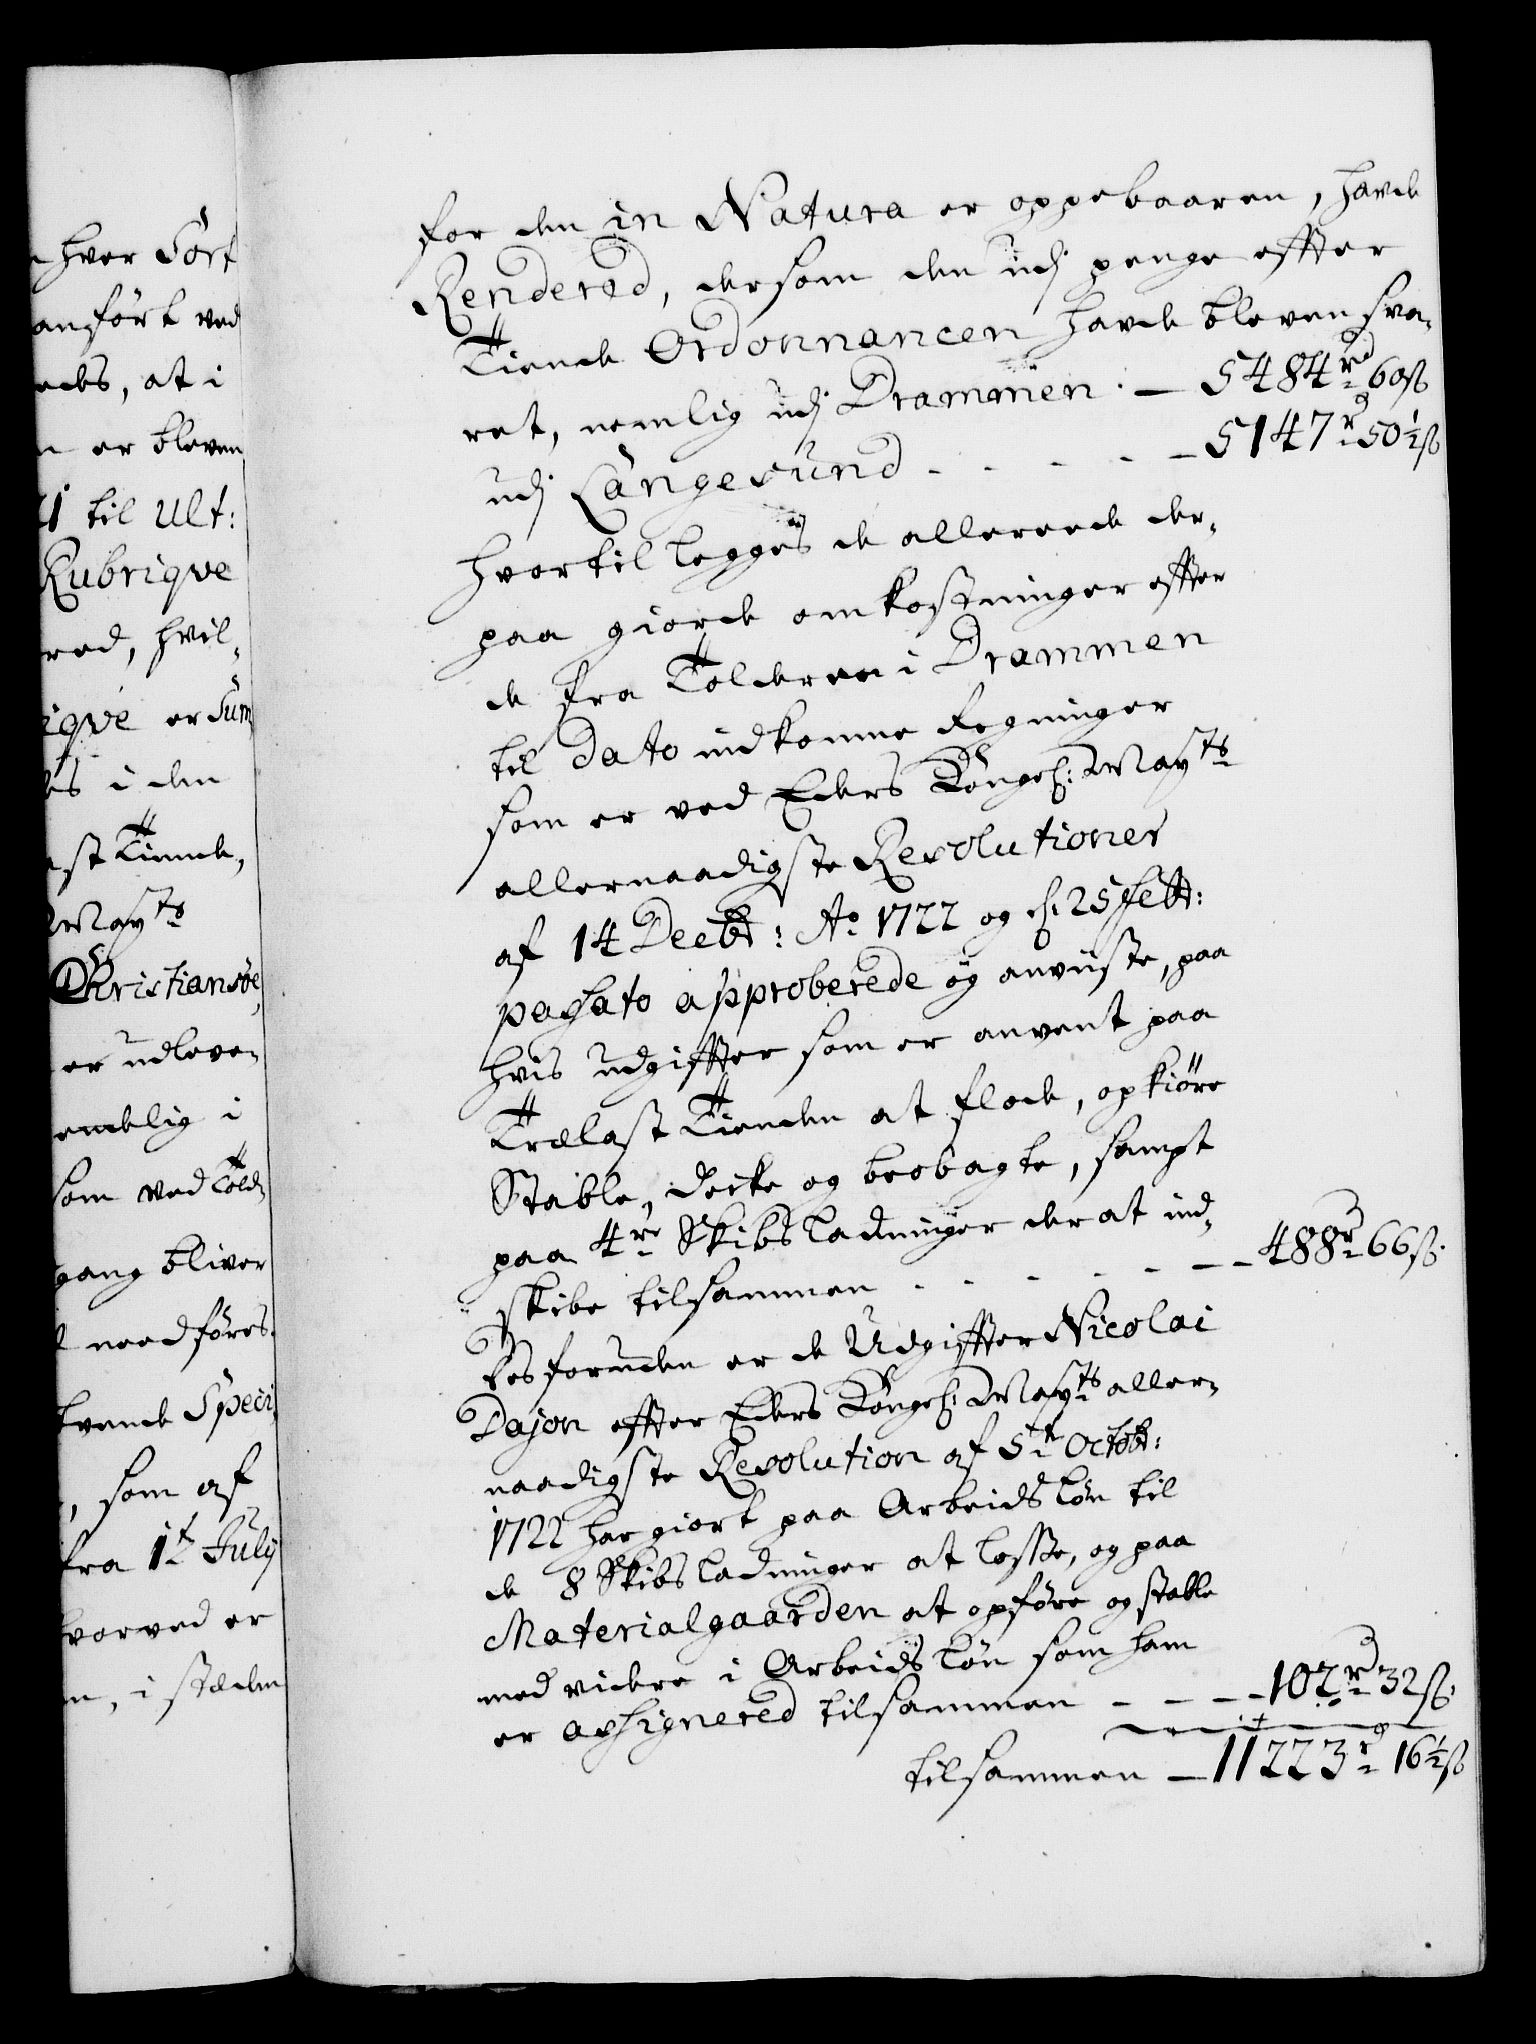 hver Sort
anført ved
at i
er bleven
til Ult:
Rubriqve
hvil-
er Sum
i den
Tiende,
Mayts
Christiansøe,
er udleve-
endelig i
som ved Told-
gang bliver
needføres.
Speci-
, som af
fra 1t July
hvorved er
, i stæden
for den in Natura er oppebaaren, havde
Rendered, dersom den udj penge effter
Tiende Ordonnancen havde bleven sva-
ret, nemlig udj Drammen. — 5484 rd 60 ß
udj Langesund - - - - - 5147 rd 50½ ß
hvortil legges de allereede der-
paa giorde omkostninger effter
de fra Tolderen i Drammen
til dato indkomne Regninger
som er ved Eders Kongel: Mayts
allernaadigste Resolutioner
af 14 Decbr: Ao 1722 og d: 25 febr:
passato approberede og anviiste, paa
hvis udgiffter som er anvent paa
Trælast Tienden at flode, opkiøre
Stable, decke og beobagte, sampt
paa 4re Skibs ladninger der at ind-
skibe tilsammen - - - - - - 488 rd 66 ß.
Desforuden er de Udgiffter Nicolai
Dajon effter Eders Kongel: Mayts aller-
naadigste Resolution af 5te Octobr:
1722 har giort paa Arbeids løn til
de 8 Skibs ladninger at losse, og paa
Materialgaarden at opføre og stable
med videre i Arbeids løn som ham
er assignered tilsammen - - - - 102 rd 32 ß.
tilsammen — 11223 rd 16½ ß